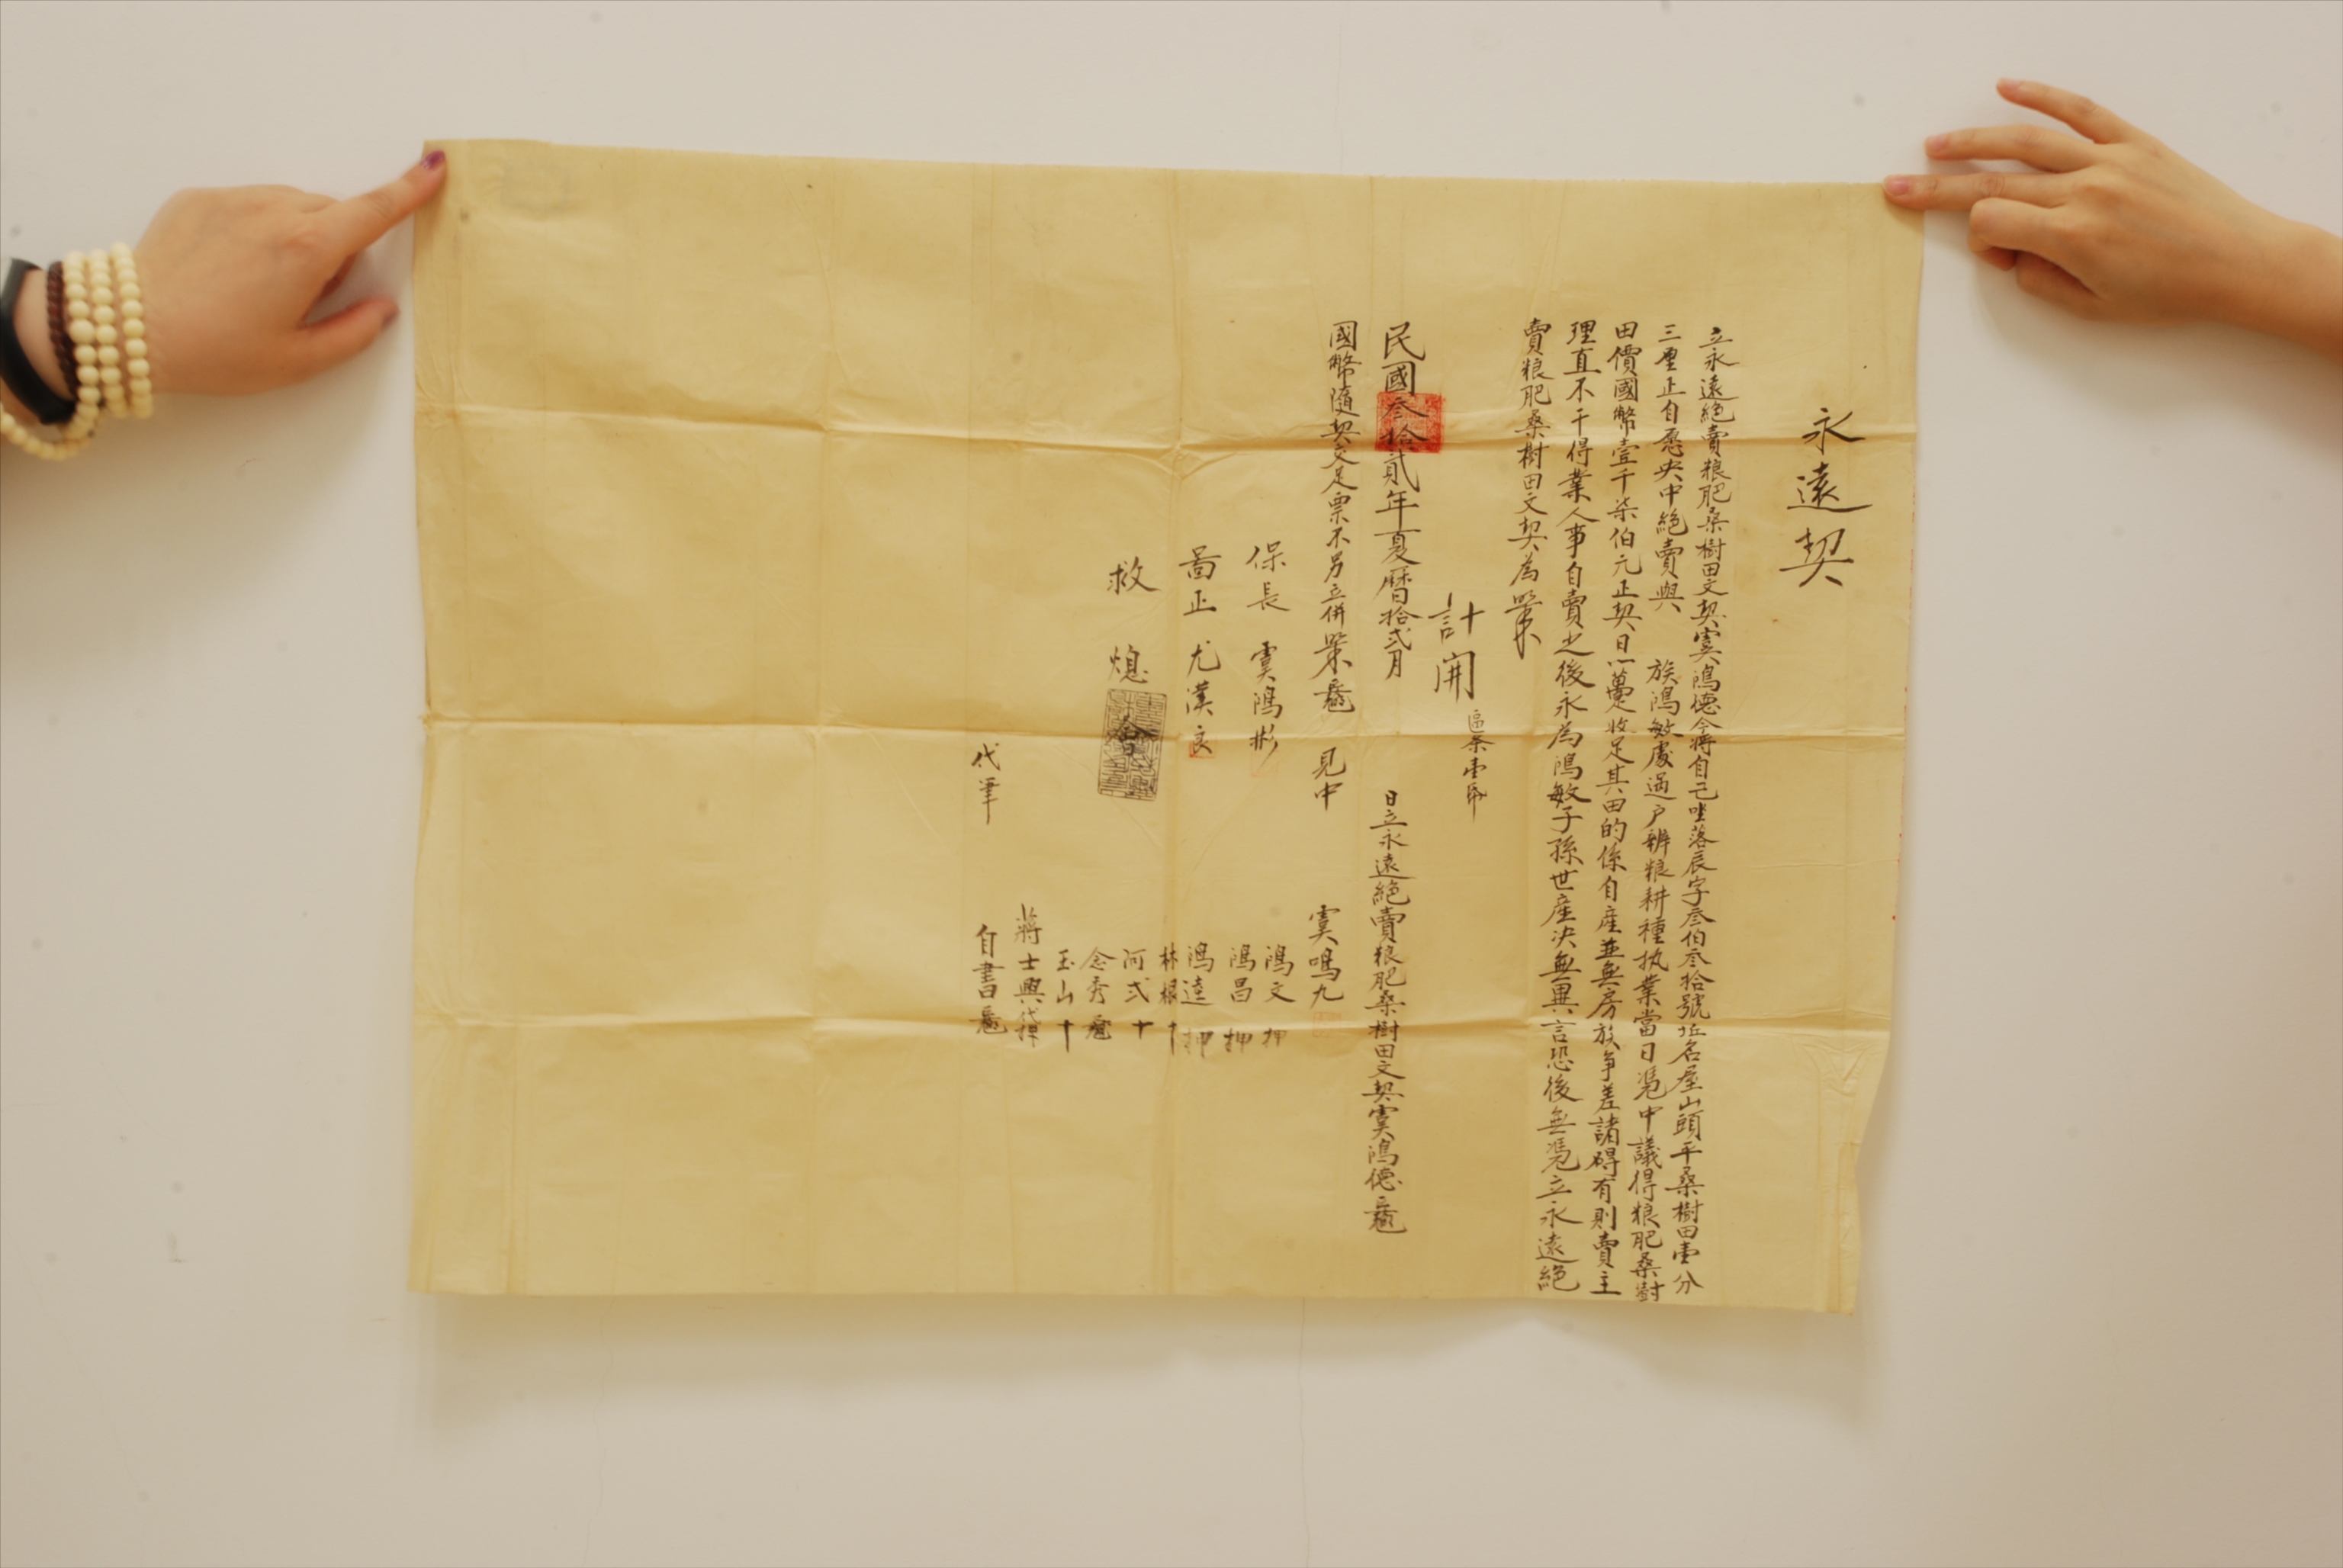 永遠契
立永遠絕賣粮肥桑樹田文契虞鴻德今將自己坐落辰字叁伯叁拾號坵名屋山頭平桑樹田壹分
三厘正自愿央中絕賣與 族鴻敏處過户辦粮耕種执業當日憑中議得粮肥桑樹
田價國幣壹千柒伯元正契日一躉收足其田的係自產並無房族爭差諸碍有則賣主
理直不干得業人事自賣之後永為鴻敏子孫世產決無異言恐後無憑立永遠絕
賣粮肥桑樹田文契為
計開
民國叁拾貳年夏曆拾弍月 日立永遠絕賣粮肥桑樹田文契虞鴻德
國幣隨契交足票不另立併 見中 虞鳴九
保長 虞鴻彬 鴻文 押
鴻昌 押
圖正 尤漢良 鴻逵 押
林根 十
救熄會 阿弍 十
念秀
玉山 十
蔣士興
代筆 自書